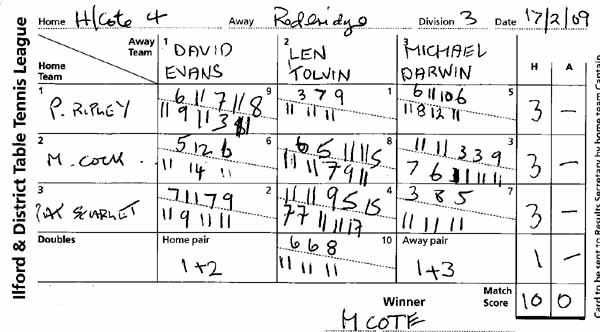 Ilford & District Table Tennis League
Home H/Cote 4 Away Rodbridge Division 3 Date 17/2/09
Away Team 1 DAVID EVANS 2 LEN TOLVIN 3 MICHAEL DARWIN H A
Home Team
1 P. RIPLEY 9 1 5 3 -
6 11 7 11 8 3 7 9 6 11 10 6
11 9 11 3 11 11 11 11 11 8 12 11
2 M. COCK. 6 8 3 3 -
5 12 6 6 5 11 11 5 11 11 3 3 9
11 14 11 11 11 7 9 11 7 6 11 11 11
3 PAT SCARLET 2 4 7 3 -
7 11 7 9 11 11 9 5 15 3 8 5
11 9 11 11 7 7 11 11 17 11 11 11
Doubles Home pair 10 Away pair 1 -
1+2 6 6 8 1+3
11 11 11
Winner Match Score 10 0
M COTE
Card to be sent to Results Secretary by home team Captain